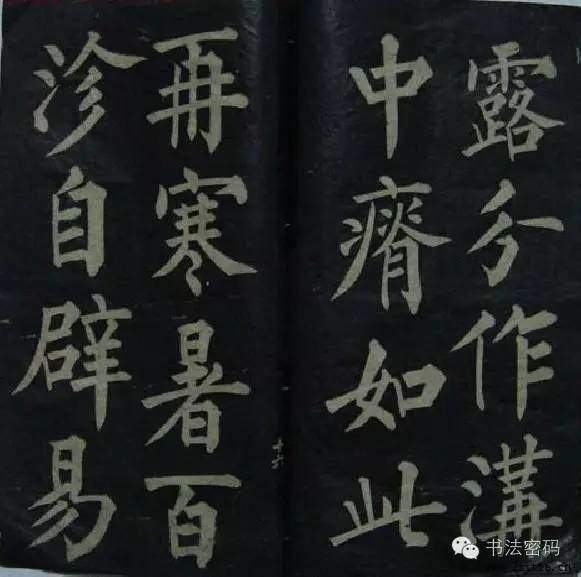 露分作溝
中瘠如此
再寒暑百
沴自辟易
十六
书法密码